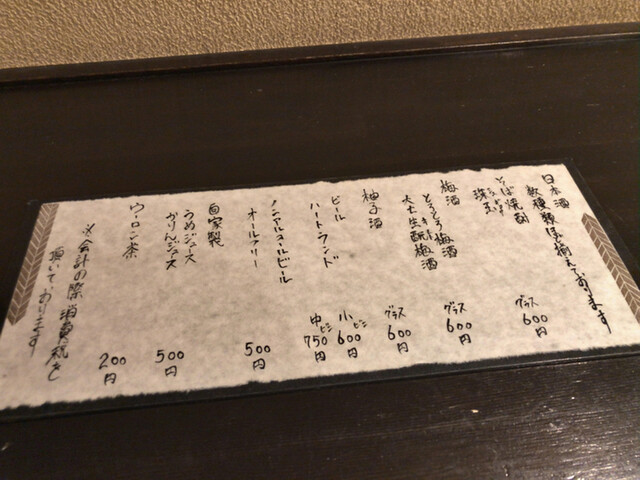 日本酒
数種類ほど揃えております
そば焼酎
グラス 600円
梅酒
とろとろ梅酒
グラス 600円
大古生酛梅酒
柚子酒
グラス 600円
ビール
ハートランド
小ビン 600円
中ビン 750円
ノンアルコールビール
オールフリー
500円
自家製
うめジュース
かりんジュース
500円
ウーロン茶
200円
※会計の際消費税を
頂いております